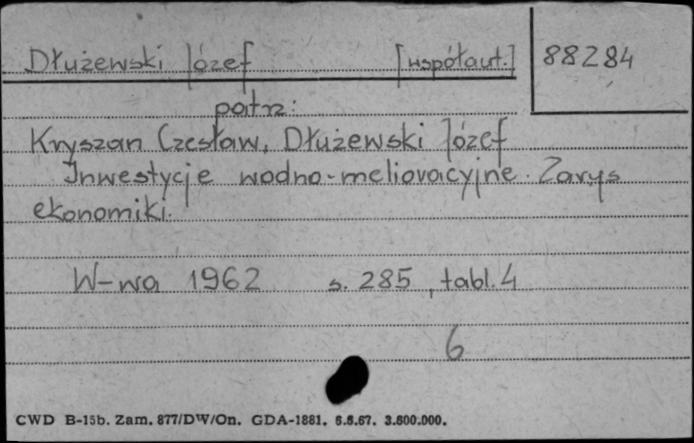 Dłużewski Józef [współaut.] 88284
patrz:
Kryszan Czesław, Dłużewski Józef
Inwestycje wodno-melioracyjne. Zarys
ekonomiki.
W-wa 1962 s. 285, tabl. 4
6
CWD B-15b. Zam. 877/DW/On. GDA-1881. 6.6.67. 3.600.000.